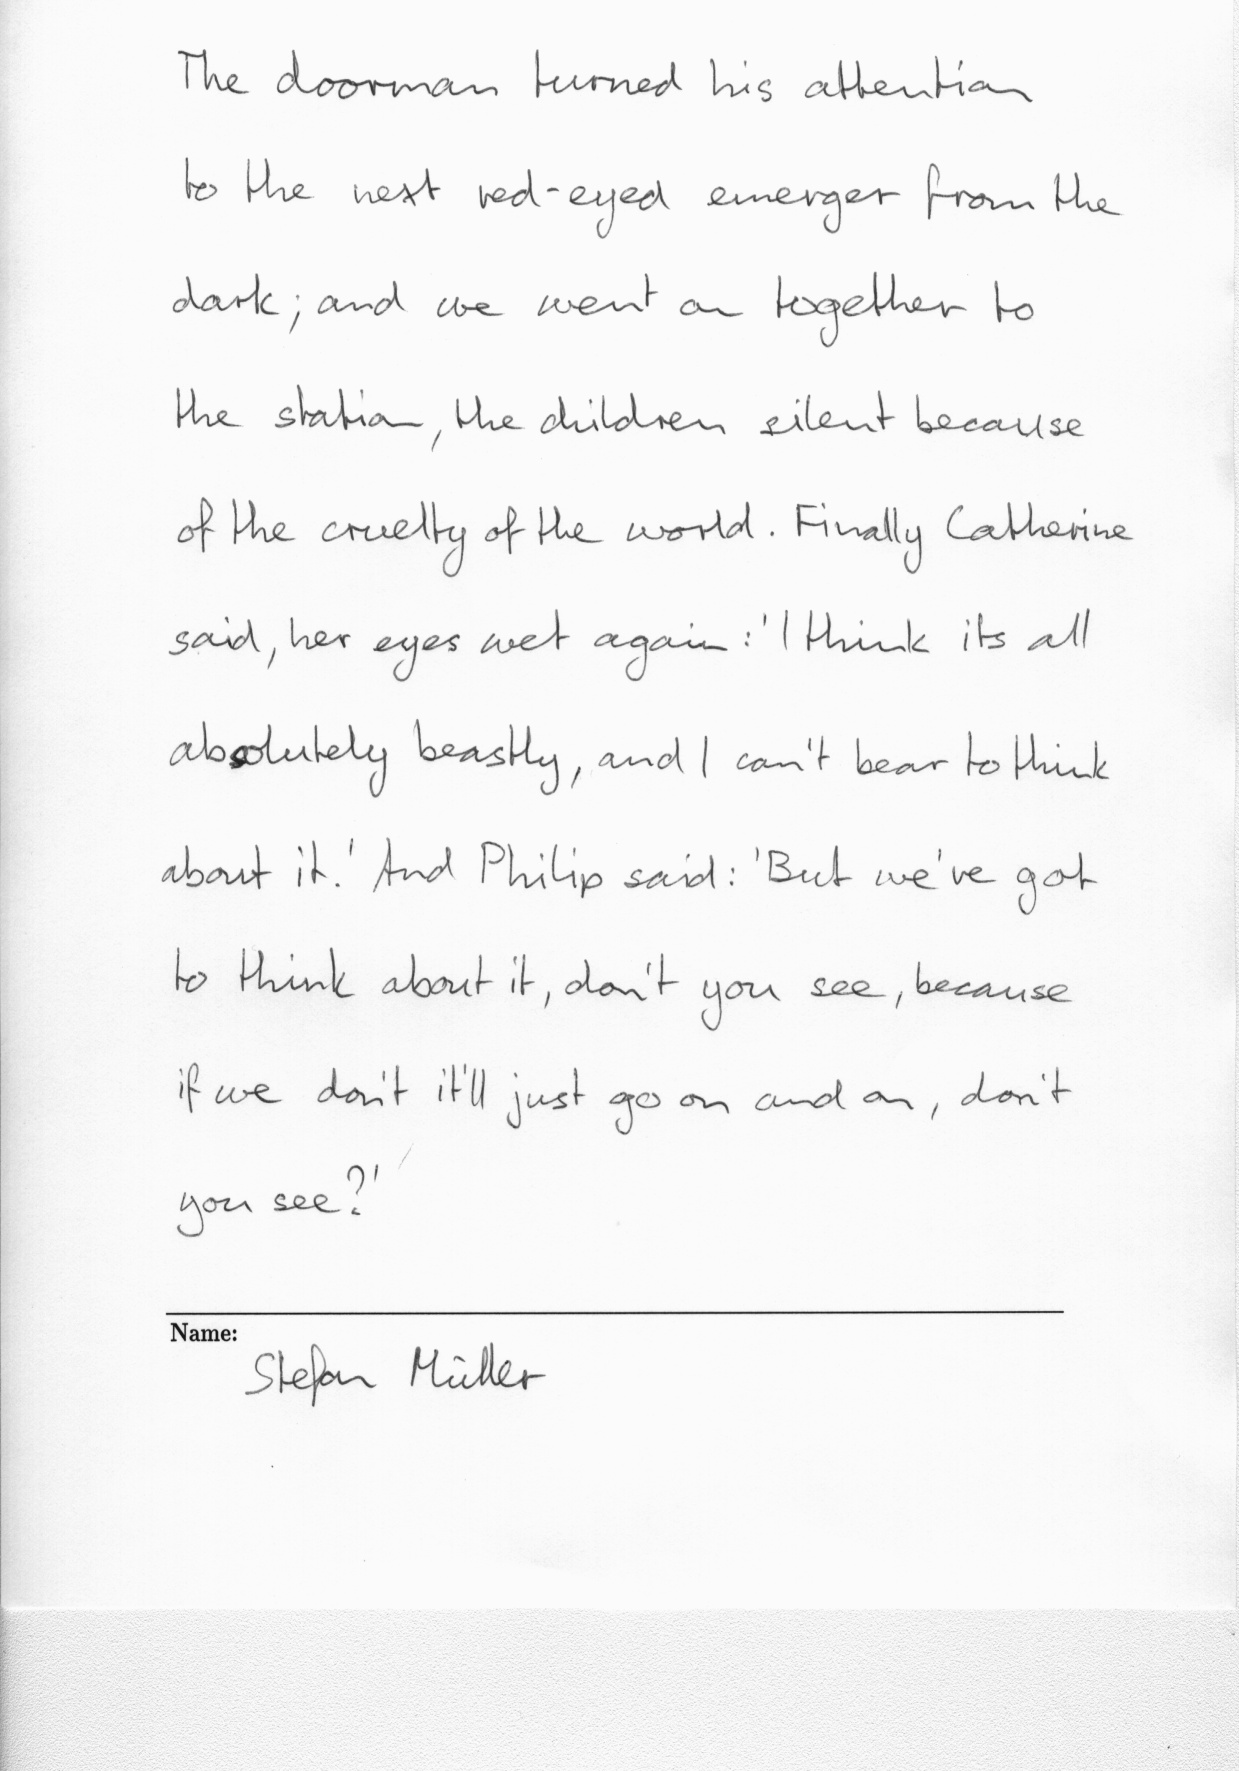 The doorman turned his attention
to the next red-eyed emerger from the
dark; and we went on together to
the station, the children silent because
of the cruelty of the world. Finally Catherine
said, her eyes wet again: 'I think its all
absolutely beastly, and I can't bear to think
about it.' And Philip said: 'But we've got
to think about it, don't you see, because
if we don't it'll just go on and on, don't
you see?'
Name:
Stefan Müller